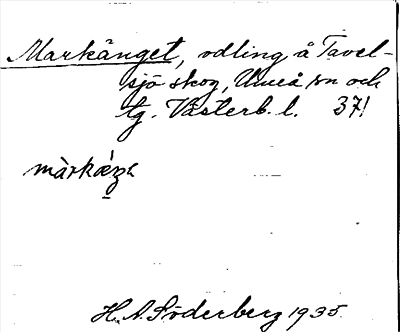 Markänget, odling å Tavel-
sjö skog, Umeå sn och
tg. Västerb. l. 37!
H. A. Söderberg 1935